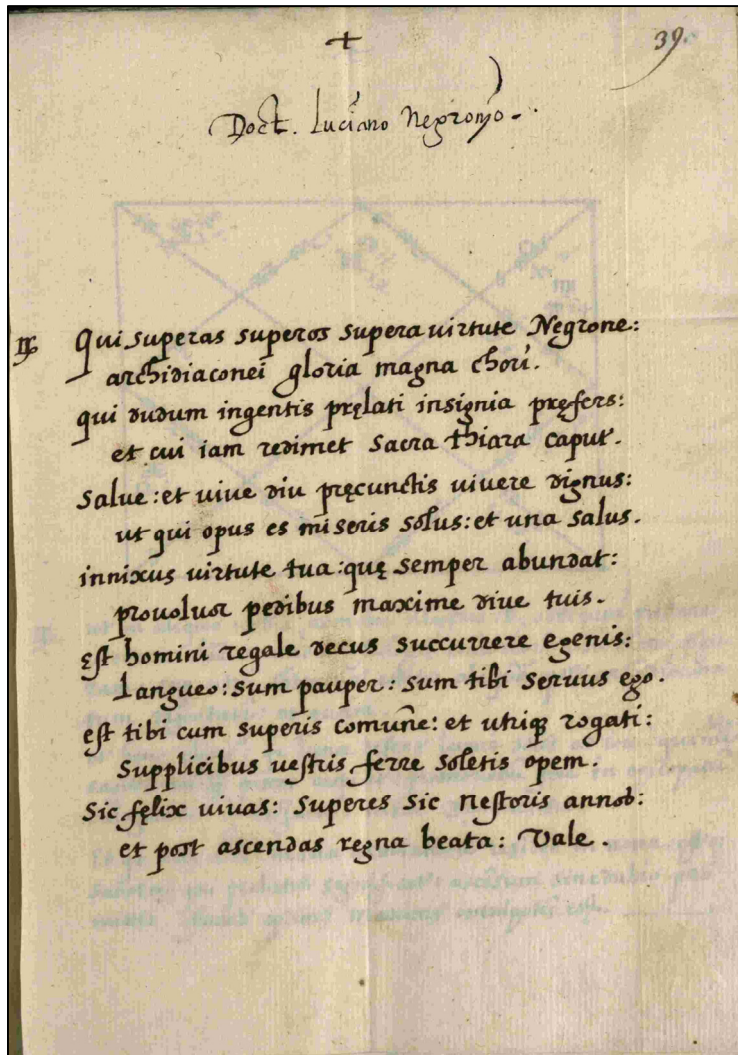 +
39.
Doct. Luciano Negronio.
Qui superas superos supera virtute Negrone:
archidiaconei gloria magna chori.
qui dudum ingentis pręlati insignia pręfers:
et cui iam redimet sacra thiara caput.
Salue: et uiue diu pręcunctis uiuere dignus:
ut qui opus es miseris solus: et una salus.
innixus virtute tua: quę semper abundat:
prouoluor pedibus maxime diue tuis.
ęst homini regale decus succurrere egenis:
Langueo: sum pauper: sum tibi seruus ego.
est tibi cum superis comune: et utriq; rogati:
Supplicibus uestris ferre soletis opem.
Sic fęlix uiuas: superes sic nestoris annos:
et post ascendas regna beata: Vale.